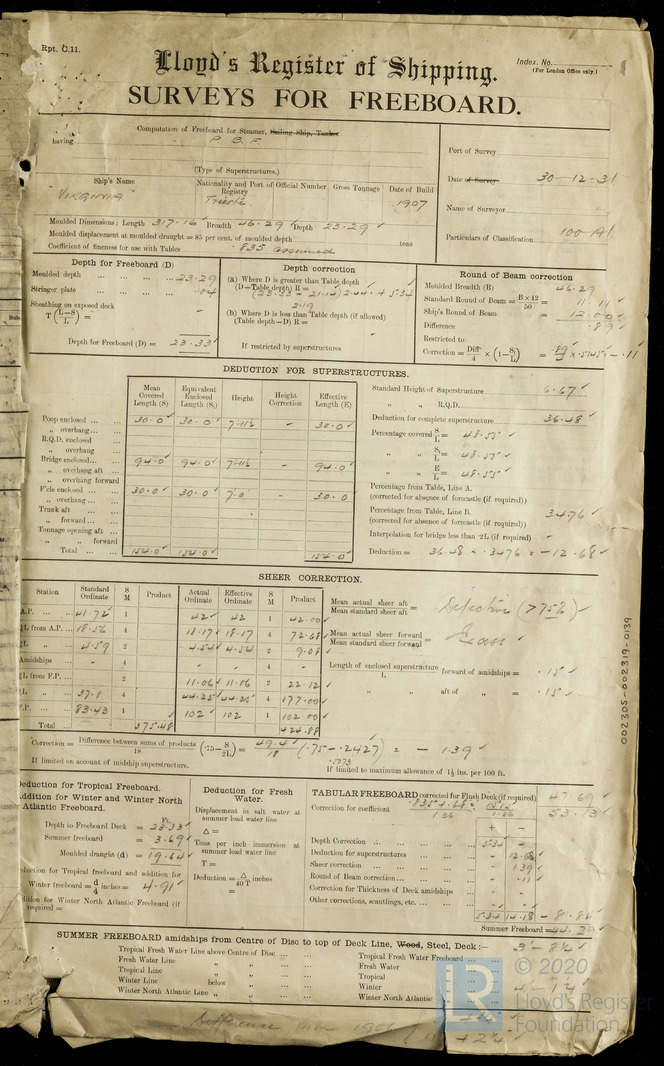 Rpt. C.11.
Lloyd's Register of Shipping.
Index. No.
(For London Office only.)
SURVEYS FOR FREEBOARD.
Computation of Freeboard for Steamer, Sailing Ship, Tanker
having P B F
(Type of Superstructures.)
Port of Survey
Date of Survey 30-12-31
Name of Surveyor
Particulars of Classification 100 A1
Ship's Name
Nationality and Port of Registry
Official Number
Gross Tonnage
Date of Build
"VIRGINIA" Trieste 1907
Moulded Dimensions: Length 317.16 Breadth 46.29 Depth 23.29
Moulded displacement at moulded draught = 85 per cent. of moulded depth tons
Coefficient of fineness for use with Tables .835 assumed
Depth for Freeboard (D)
Moulded depth ... 23.29
Stringer plate ... .04
Sheathing on exposed deck -
T (L-S/L) =
Depth for Freeboard (D) = 23.33
Depth correction
(a) Where D is greater than Table depth
(D-Table depth) R =
(23.33 - 21.14) 2.44 = + 5.34
2.19
(b) Where D is less than Table depth (if allowed)
(Table depth-D) R =
If restricted by superstructures
Round of Beam correction
Moulded Breadth (B) 46.29
Standard Round of Beam = B × 12 / 50 = 11.11
Ship's Round of Beam = 12.00
Difference .89
Restricted to
Correction = Diff/4 × (1 - S₁/L) = .89/4 × .5145 = - .11
DEDUCTION FOR SUPERSTRUCTURES.
Mean Covered Length (S)
Equivalent Enclosed Length (S₁)
Height
Height Correction
Effective Length (E)
Poop enclosed 30.0 30.0 7-11½ - 30.0
" overhang
R.Q.D. enclosed
" overhang
Bridge enclosed 94.0 94.0 7-11½ - 94.0
" overhang aft
" overhang forward
F'cle enclosed 30.0 30.0 7-0 - 30.0
" overhang
Trunk aft
" forward
Tonnage opening aft
" " forward
Total 154.0 154.0 154.0
Standard Height of Superstructure 6.67
" " R.Q.D.
Deduction for complete superstructure 36.48
Percentage covered S/L = 48.55
" " S₁/L = 48.55
" " E/L = 48.55
Percentage from Table, Line A.
(corrected for absence of forecastle (if required))
Percentage from Table, Line B. 34.76
(corrected for absence of forecastle (if required))
Interpolation for bridge less than .2L (if required) -
Deduction = 36.48 × .3476 = - 12.68
SHEER CORRECTION.
Station
Standard Ordinate
S M
Product
Actual Ordinate
Effective Ordinate
S M
Product
A.P. 41.72 1 42 42 1 42.00
⅙L from A.P. 18.56 4 18.17 18.17 4 72.68
⅓L " 4.59 2 4.54 4.54 2 9.08
Amidships - 4 - - 4 -
⅓L from F.P. 2 11.06 11.06 2 22.12
⅙L " 37.1 4 44.25 44.25 4 177.00
F.P. 83.43 1 102 102 1 102.00
Total 375.48 424.88
Mean actual sheer aft / Mean standard sheer aft = Defective (>75%)
Mean actual sheer forward / Mean standard sheer forward = Excess
Length of enclosed superstructure / L forward of amidships = .15
" " aft of " = .15
Correction = Difference between sums of products / 18 (.75 - S/2L) = 49.4/18 (.75 - .2427) = - 1.39
.5073
If limited on account of midship superstructure.
If limited to maximum allowance of 1½ ins. per 100 ft.
Deduction for Tropical Freeboard.
Addition for Winter and Winter North Atlantic Freeboard.
Ft.
Depth to Freeboard Deck = 23.33
Summer freeboard = 3.69
Moulded draught (d) = 19.64
Deduction for Tropical freeboard and addition for
Winter freeboard = d/4 inches = 4.91
Addition for Winter North Atlantic Freeboard (if required =
Deduction for Fresh Water.
Displacement in salt water at summer load water line
Δ =
Tons per inch immersion at summer load water line
T =
Deduction = Δ / 40T inches
=
TABULAR FREEBOARD corrected for Flush Deck (if required) 47.69
Correction for coefficient .835 + .68 / 1.36 = 1.515 / 1.36 53.13
+ -
Depth Correction 5.34 -
Deduction for superstructures - 12.68
Sheer correction - 1.39
Round of Beam correction - .11
Correction for Thickness of Deck amidships - -
Other corrections, scantlings, etc. - -
5.34 14.18 - 8.84
Summer Freeboard = 44.29
SUMMER FREEBOARD amidships from Centre of Disc to top of Deck Line, Wood, Steel, Deck:— 3 - 8¼
Tropical Fresh Water Line above Centre of Disc
Fresh Water Line " "
Tropical Line " "
Winter Line below " "
Winter North Atlantic Line " " "
Tropical Fresh Water Freeboard
Fresh Water "
Tropical "
Winter " 4 - 1¼
Winter North Atlantic "
Difference from 1906
+ 2¼
002305-002319-0139
© 2020
Lloyd's Register
Foundation